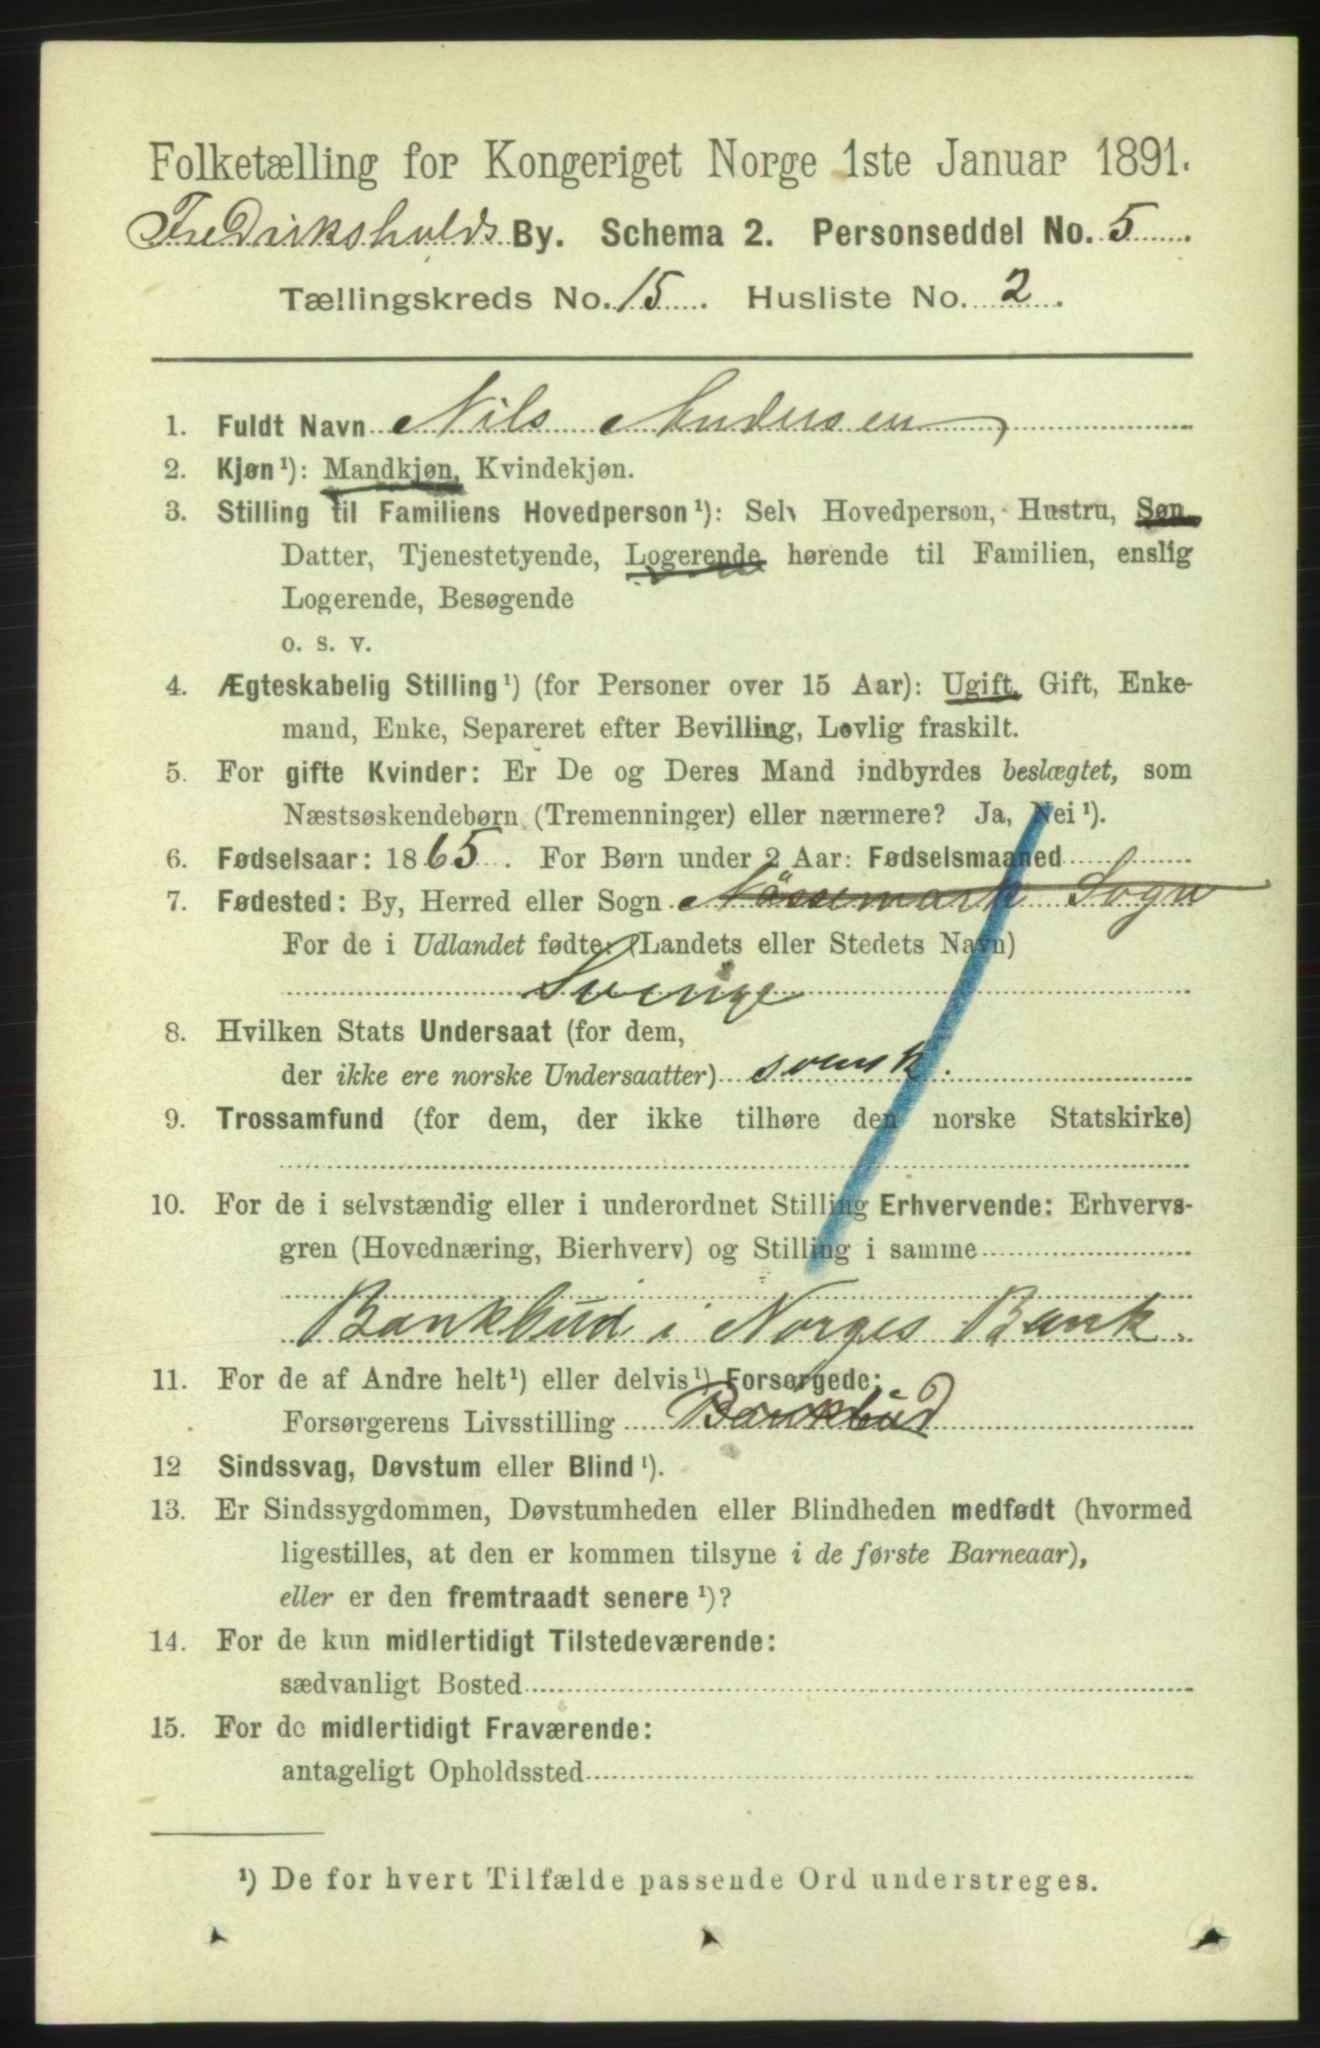 Folketælling for Kongeriget Norge 1ste Januar 1891.
Fredrikshalds By. Schema 2. Personseddel No. 5
Tællingskreds No. 15. Husliste No. 2.
1. Fuldt Navn Nils Andersen
2. Kjøn¹): Mandkjøn, Kvindekjøn.
3. Stilling til Familiens Hovedperson¹): Selv Hovedperson, Hustru, Søn,
Datter, Tjenestetyende, Logerende hørende til Familien, enslig
Logerende, Besøgende
o. s. v.
4. Ægteskabelig Stilling¹) (for Personer over 15 Aar): Ugift, Gift, Enke-
mand, Enke, Separeret efter Bevilling, Lovlig fraskilt.
5. For gifte Kvinder: Er De og Deres Mand indbyrdes beslægtet, som
Næstsøskendebørn (Tremenninger) eller nærmere? Ja, Nei¹).
6. Fødselsaar: 1865. For Børn under 2 Aar: Fødselsmaaned
7. Fødested: By, Herred eller Sogn Nössemark Sogn
For de i Udlandet fødte: (Landets eller Stedets Navn)
Sverige
8. Hvilken Stats Undersaat (for dem,
der ikke ere norske Undersaatter) svensk.
9. Trossamfund (for dem, der ikke tilhøre den norske Statskirke)
10. For de i selvstændig eller i underordnet Stilling Erhvervende: Erhvervs-
gren (Hovednæring, Bierhverv) og Stilling i samme
Bankbud i Norges Bank.
11. For de af Andre helt¹) eller delvis¹) Forsørgede:
Forsørgerens Livsstilling Bankbud
12 Sindssvag, Døvstum eller Blind¹).
13. Er Sindssygdommen, Døvstumheden eller Blindheden medfødt (hvormed
ligestilles, at den er kommen tilsyne i de første Barneaar),
eller er den fremtraadt senere¹)?
14. For de kun midlertidigt Tilstedeværende:
sædvanligt Bosted
15. For de midlertidigt Fraværende:
antageligt Opholdssted
¹) De for hvert Tilfælde passende Ord understreges.